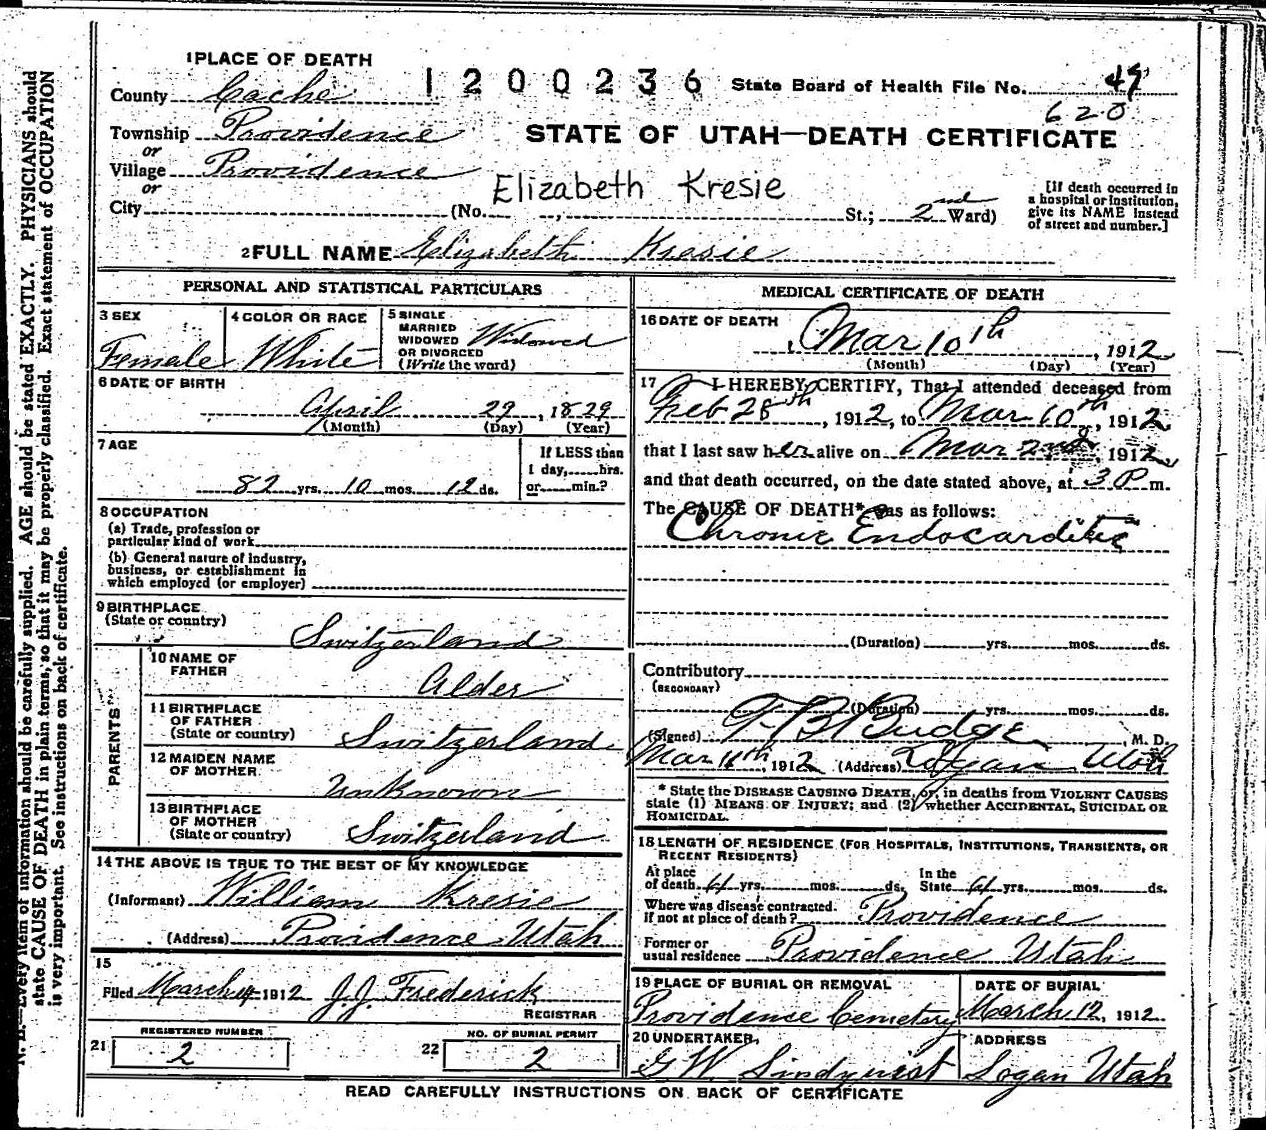 1 PLACE OF DEATH
County Cache
1200236
State Board of Health File No. 49
620
Township Providence
or
Village Providence
or
City
STATE OF UTAH—DEATH CERTIFICATE
Elizabeth Kresie
(No. , St.; 2nd Ward)
[If death occurred in
a hospital or institution,
give its NAME instead
of street and number.]
2 FULL NAME Elizabeth Kresie
PERSONAL AND STATISTICAL PARTICULARS
3 SEX
Female
4 COLOR OR RACE
White
5 SINGLE
MARRIED
WIDOWED
OR DIVORCED
(Write the word)
Widowed
6 DATE OF BIRTH
April 29, 1829
(Month) (Day) (Year)
7 AGE
82 yrs. 10 mos. 12 ds.
If LESS than
1 day, hrs.
or min.?
8 OCCUPATION
(a) Trade, profession or
particular kind of work
(b) General nature of industry,
business, or establishment in
which employed (or employer)
9 BIRTHPLACE
(State or country)
Switzerland
PARENTS
10 NAME OF
FATHER
Alder
11 BIRTHPLACE
OF FATHER
(State or country)
Switzerland
12 MAIDEN NAME
OF MOTHER
Unknown
13 BIRTHPLACE
OF MOTHER
(State or country)
Switzerland
14 THE ABOVE IS TRUE TO THE BEST OF MY KNOWLEDGE
(Informant) William Kresie
(Address) Providence Utah
15
Filed March 1912 J.J. Frederick
REGISTRAR
21 REGISTERED NUMBER
2
22 NO. OF BURIAL PERMIT
2
MEDICAL CERTIFICATE OF DEATH
16 DATE OF DEATH
Mar 10th, 1912
(Month) (Day) (Year)
17 I HEREBY CERTIFY, That I attended deceased from
Feb 28th, 1912, to Mar 10th, 1912,
that I last saw her alive on Mar 2nd, 1912,
and that death occurred, on the date stated above, at 3 P m.
The CAUSE OF DEATH* was as follows:
Chronic Endocarditis
(Duration) yrs. mos. ds.
Contributory
(SECONDARY)
(Duration) yrs. mos. ds.
(Signed) Budge M. D.
Mar 11th, 1912 (Address) Logan Utah
* State the DISEASE CAUSING DEATH, or, in deaths from VIOLENT CAUSES
state (1) MEANS OF INJURY; and (2) whether ACCIDENTAL, SUICIDAL OR
HOMICIDAL.
18 LENGTH OF RESIDENCE (FOR HOSPITALS, INSTITUTIONS, TRANSIENTS, OR
RECENT RESIDENTS)
At place
of death yrs. mos. ds.
In the
State yrs. mos. ds.
Where was disease contracted.
If not at place of death? Providence
Former or
usual residence Providence Utah
19 PLACE OF BURIAL OR REMOVAL
Providence Cemetary
DATE OF BURIAL
March 12, 1912
20 UNDERTAKER,
G W Lindquist
ADDRESS
Logan Utah
READ CAREFULLY INSTRUCTIONS ON BACK OF CERTIFICATE
N. B.—Every item of information should be carefully supplied. AGE should be stated EXACTLY. PHYSICIANS should
state CAUSE OF DEATH in plain terms, so that it may be properly classified. Exact statement of OCCUPATION
is very important. See instructions on back of certificate.